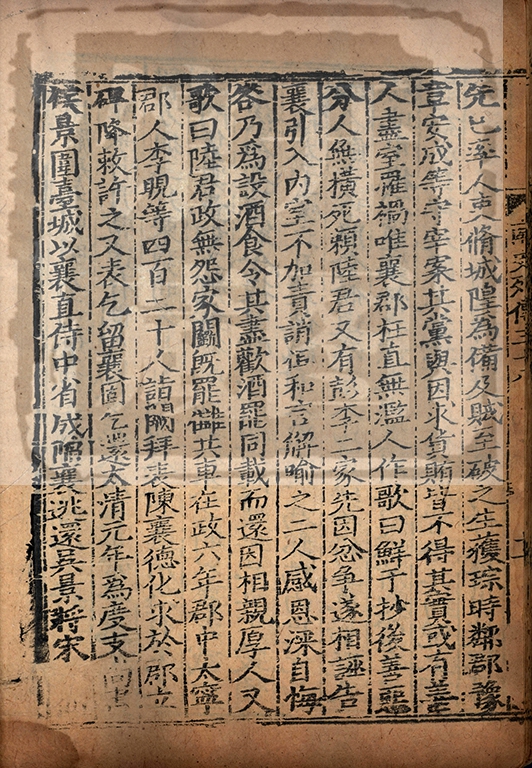 南史列傳三十八
先已率人吏脩城隍為備及賊至破之生獲琮時鄰郡豫
章安成等守宰案其黨與因求貨賄皆不得其實或有善
人盡室羅禍唯襄郡枉直無濫人作歌曰鮮于抄後善惡
分人無橫死賴陸君又有彭李二家先因忿争遂相誣告
襄引入內室不加責誚但和言解喻之二人感恩深自悔
咎乃爲設酒食令其盡歡酒罷同載而還因相親厚人又
歌曰陸君政無怨家鬭既罷讎共車在政六年郡中太寧
郡人李睍等四百二十人詣闕拜表陳襄德化求於郡立
碑降敕許之又表乞留襄固乞還太清元年爲度支尚書
侯景圍臺城以襄直侍中省城陷襄逃還吳景將宋